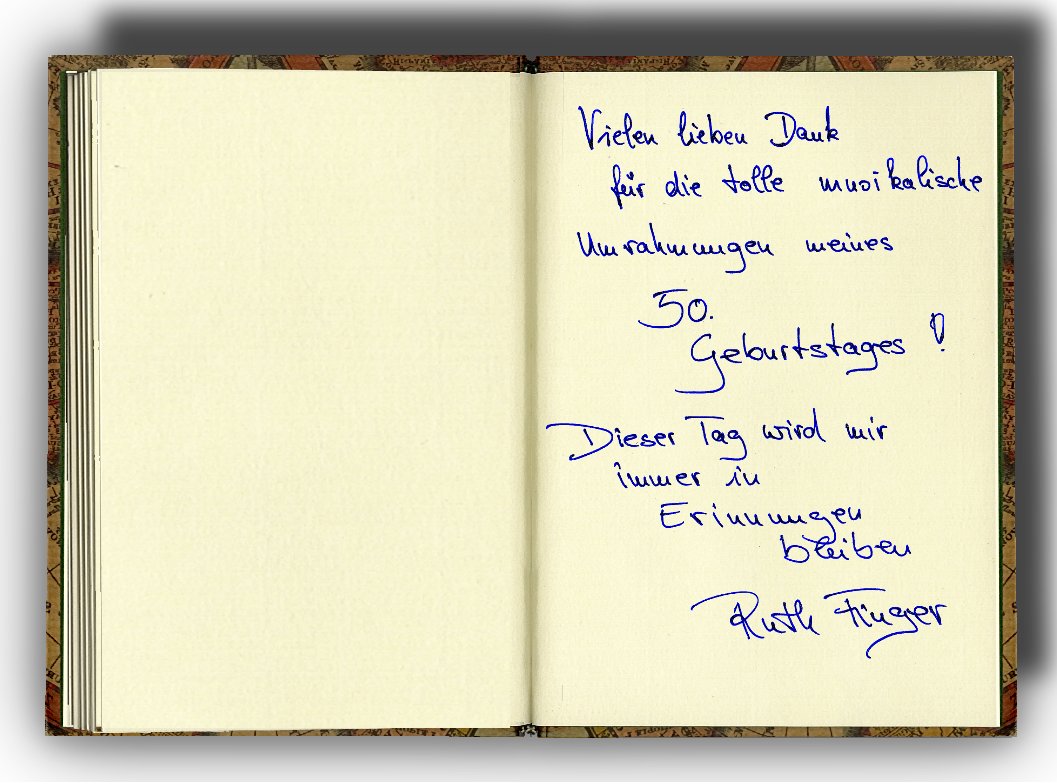 Vielen lieben Dank
für die tolle musikalische
Umrahmungen meines
50.
Geburtstages!
Dieser Tag wird mir
immer in
Erinnungen
bleiben
Ruth Finger